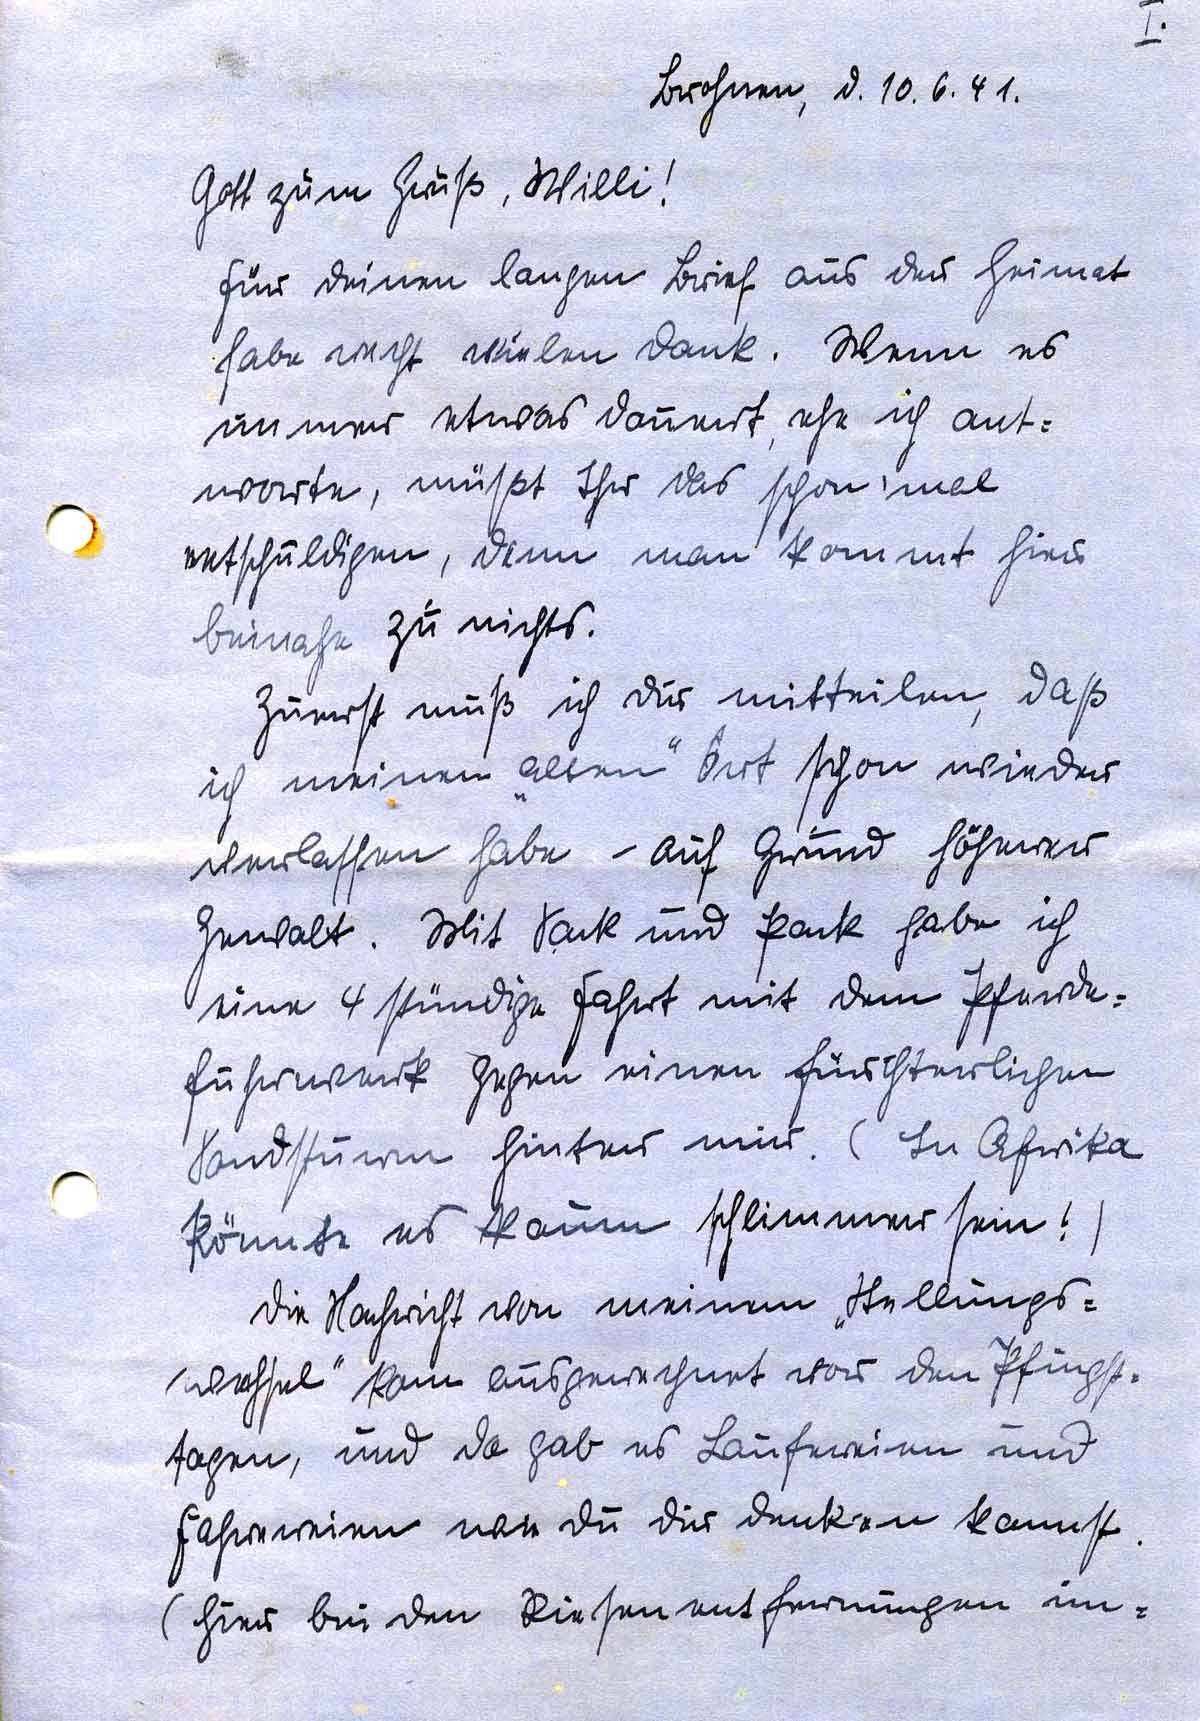 I.
Brohnen, d. 10. 6. 41.
Gott zum Gruß, Willi!
Für deinen langen Brief aus der Heimat
habe recht vielen Dank. Wenn es
immer etwas dauert, ehe ich ant=
worte, müßt Ihr das schon 'mal
entschuldigen, denn man kommt hier
beinahe zu nichts.
Zuerst muß ich dir mitteilen, daß
ich meinen „alten“ Ort schon wieder
verlassen habe – auf Grund höherer
Gewalt. Mit Sack und Pack habe ich
eine 4 stündige Fahrt mit dem Pferde=
fuhrwerk gegen einen fürchterlichen
Sandsturm hinter mir. (In Afrika
könnte es kaum schlimmer sein!)
Die Nachricht von meinem „Stellungs=
wechsel“ kam ausgerechnet vor den Pfingst=
tagen, und da gab es Laufereien und
Fahrereien wie du dir denken kannst.
(Hier bei den Riesenentfernungen im=